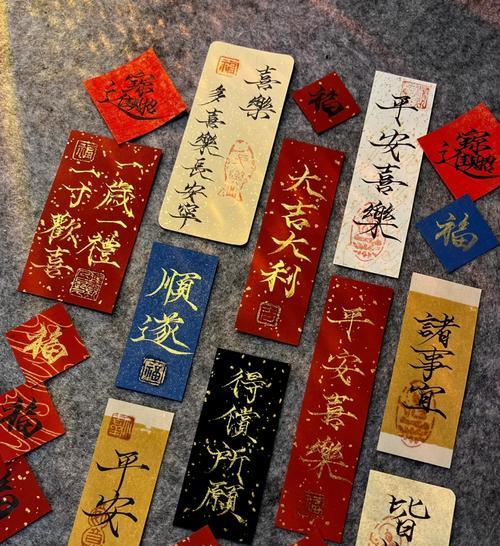 喜樂
多喜樂長安寧
福
平安喜樂
一歲一禮
一寸歡喜
大吉大利
福
順遂
平安喜樂
諸事宜
福
得償所願
福
平安
皆